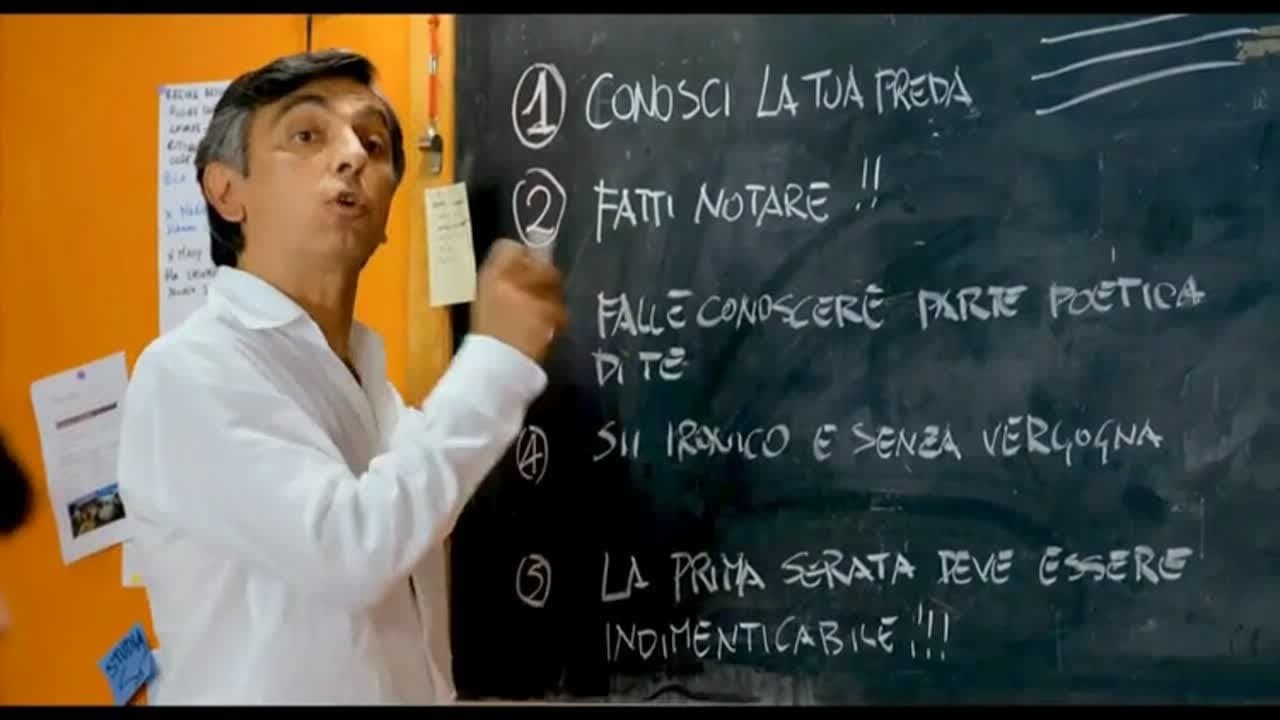 1 CONOSCI LA TUA PREDA
2 FATTI NOTARE !!
FALLE CONOSCERE PARTE POETICA
DI TE
4 SII IRONICO E SENZA VERGOGNA
5 LA PRIMA SERATA DEVE ESSERE
INDIMENTICABILE !!!
STUDIA